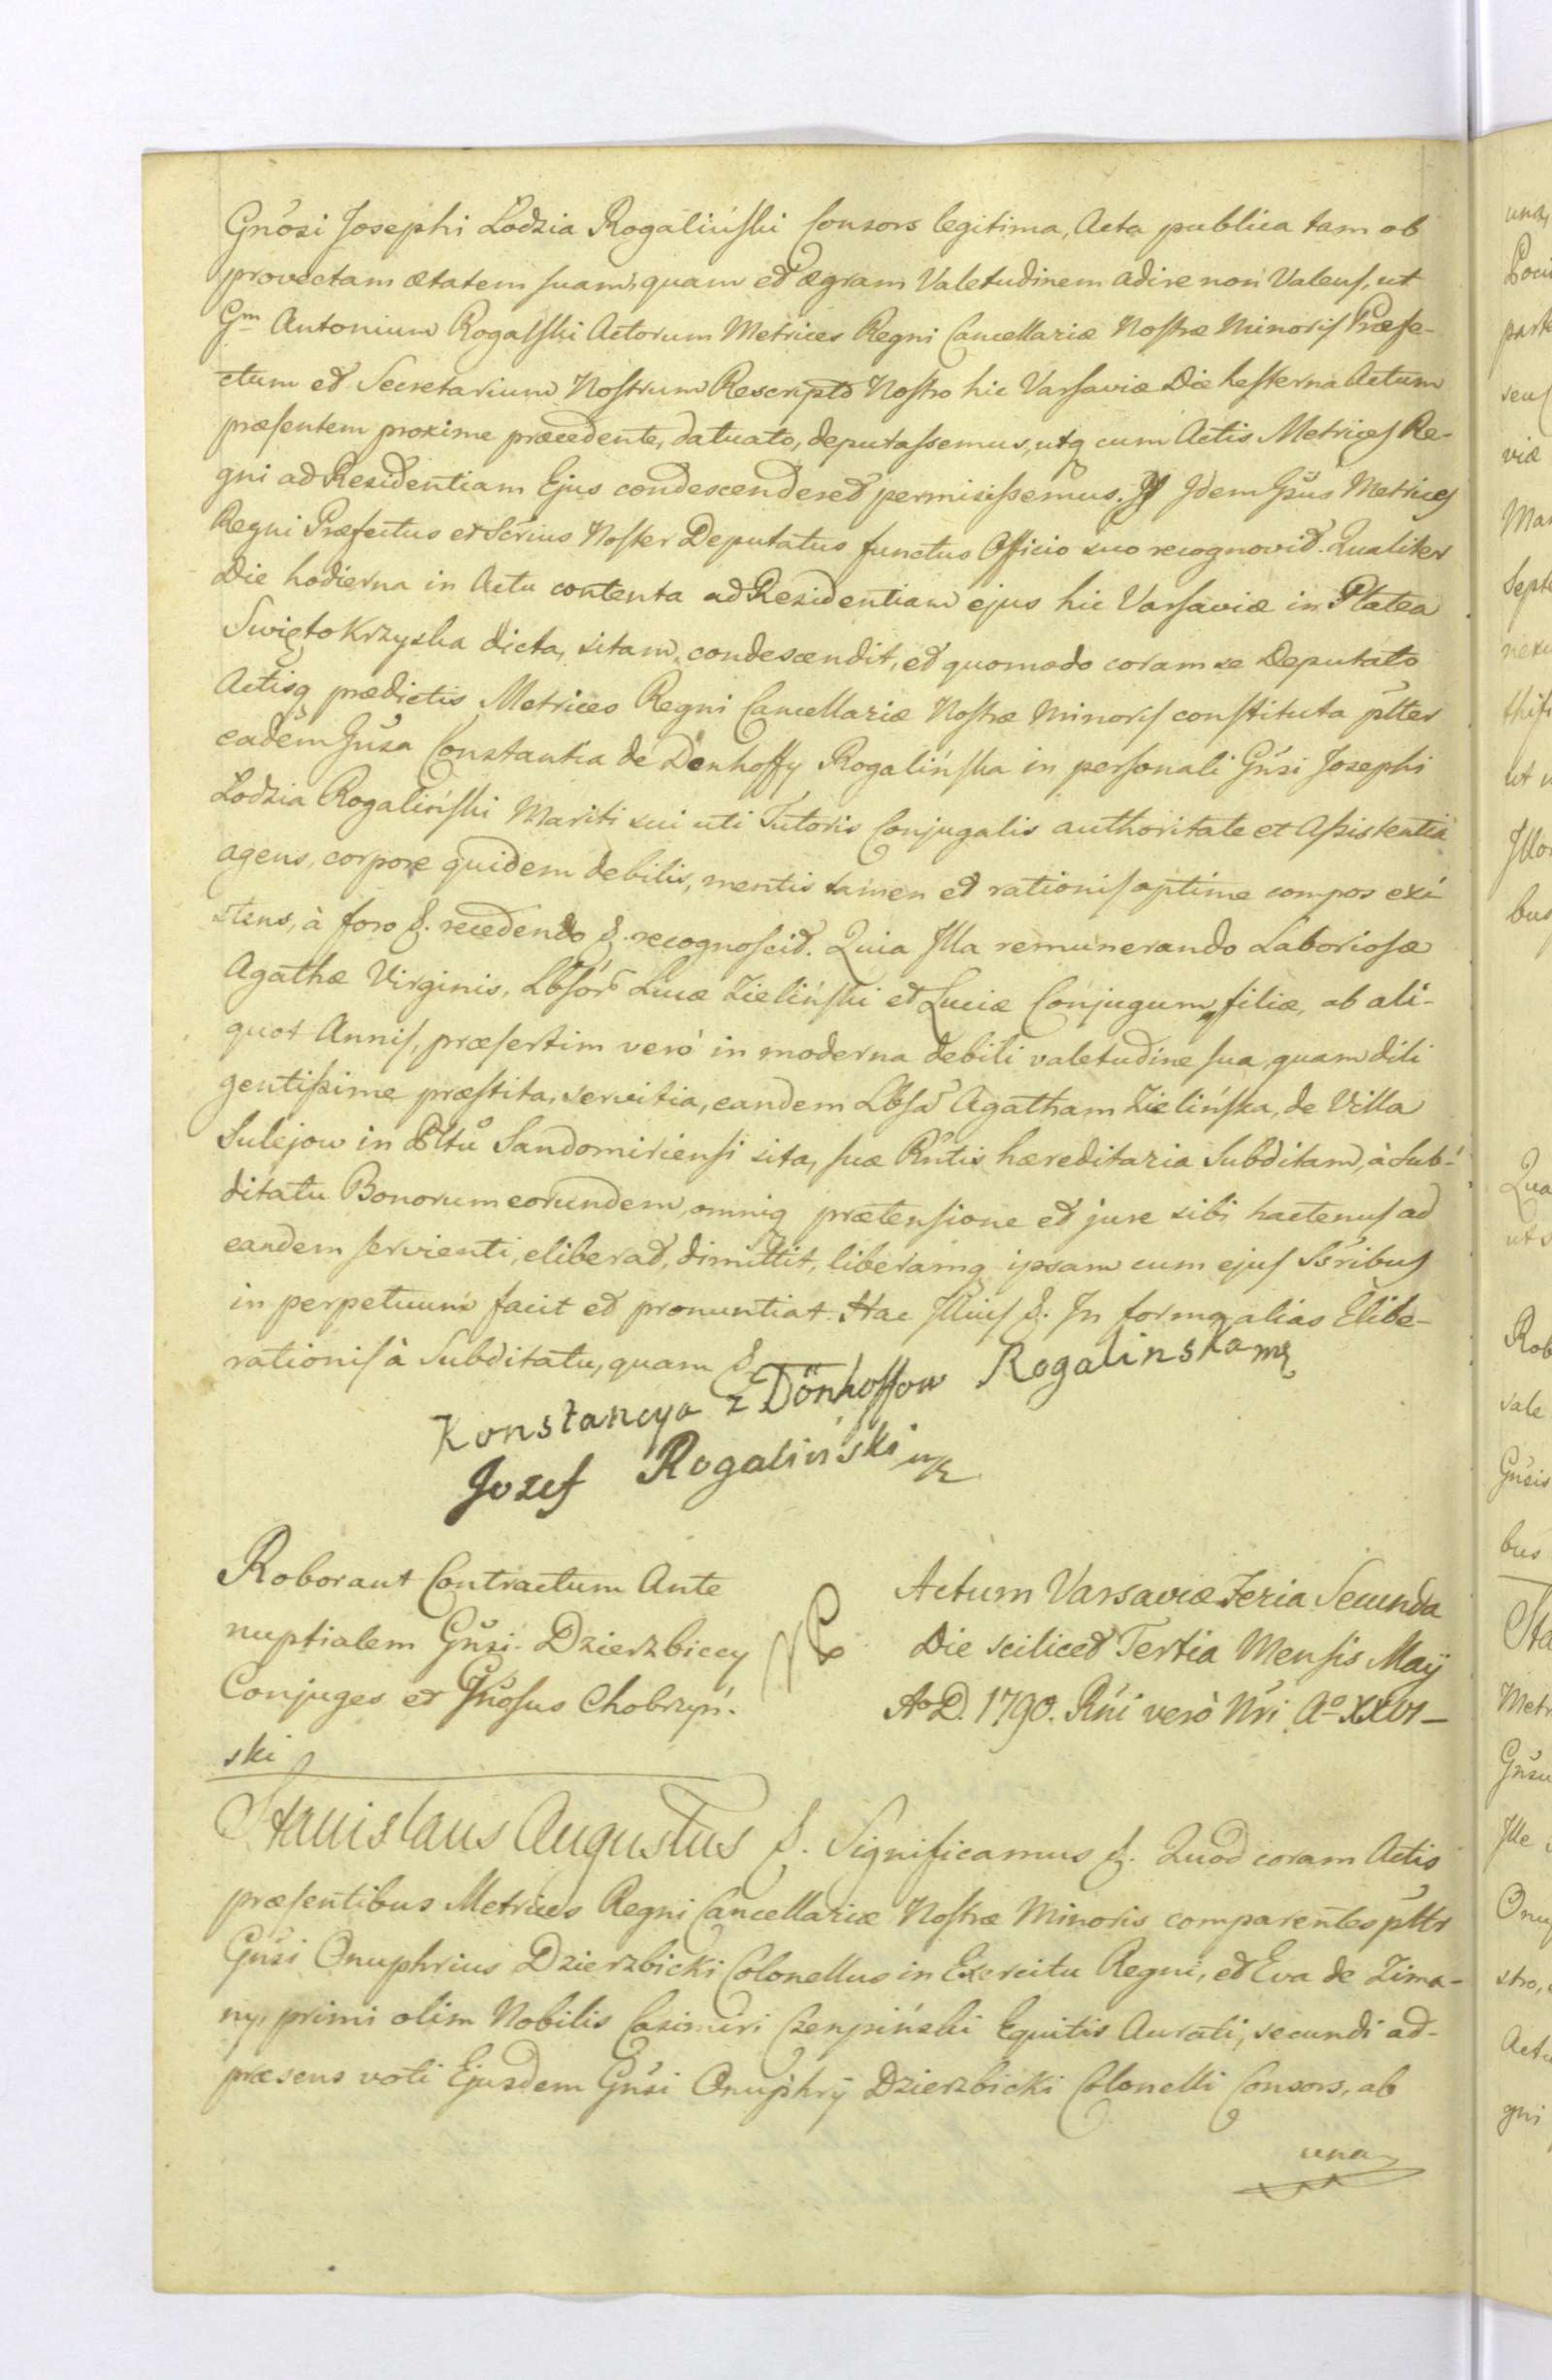 Gnosi Josephi Łodzia Rogaliński Consors legitima, Acta publica tam ob
provectam ætatem suam, quam et ægram Valetudinem adire non Valens, ut
Gm Antonium Rogalski Actorum Metrices Regni Cancellariæ Nostræ Minoris Præfe-
ctum et Secretarium Nostrum Rescripto Nostro hic Varsaviæ Die hesterna Actum
præsentem proxime præcedente, datuato, deputassemus, utq cum Actis Metrices Re-
gni ad Residentiam Ejus condescenderet permisissemus. Idem Gsus Metrices
Regni Præfectus et Scrius Noster Deputatus functus Officio suo recognovit. Qualiter
Die hodierna in Actu contenta ad Residentiam ejus hic Varsaviæ in Platea
Swięto Krzyska dicta, sitam, condescendit, et quomodo coram se Deputato
Actisq prædictis Metrices Regni Cancellariæ Nostræ Minoris constituta ptter
eadem Gnsa Constantia de Dönhoffy Rogalińska in personali Gnsi Josephi
Łodzia Rogaliński Mariti sui uti Tutoris Conjugalis authoritate et Assistentia
agens, corpore quidem debilis, mentis tamen et rationis optime compos exi-
stens, à foro &. recedendo &. recognoscit. Quia Illa remunerando Laboriosæ
Agathæ Virginis, Lbsor Lucæ Zieliński et Luciæ Conjugum filiæ, ab ali-
quot Annis, præsertim verò in moderna debili valetudine sua, quam dili
gentissime præstita, servitia, eandem Lbsa Agatham Zielińska, de Villa
Sulejow in Plttu Sandomiriensi sita, suæ Rntis hæreditaria Subditam, à Sub-
ditatu Bonorum eorundem, omniq prætensione et jure sibi hactenus ad
eandem servienti, eliberat, dimittit, liberamq ipsam cum ejus Ssribus
in perpetuum facit et pronuntiat. Hac Illius &. In forma alias Elibe-
rationis à Subditatu, quam &.
Konstancya z Dönhoffow Rogalinska mp
Jozef Rogaliński mp
Roborant Contractum Ante
nuptialem Gnsi Dzierzbiccy
Conjuges et Gnosus Chobrzyń-
ski
Actum Varsaviæ Feria Secunda
Die scilicet Tertia Mensis Maÿ
Ao D. 1790. Rni verò Nri Ao XXVI —
Stanislaus Augustus &. Significamus &. Quod coram Actis
præsentibus Metrices Regni Cancellariæ Nostræ Minoris comparentes pltr
Gnsi Onuphrius Dzierzbicki Colonellus in Exercitu Regni, et Eva de Zima-
ny, primi olim Nobilis Casimiri Czenpiński Equitis Aurati, secundi ad-
præsens voti Ejusdem Gnsi Onuphrÿ Dzierzbicki Colonelli Consors, ab
una